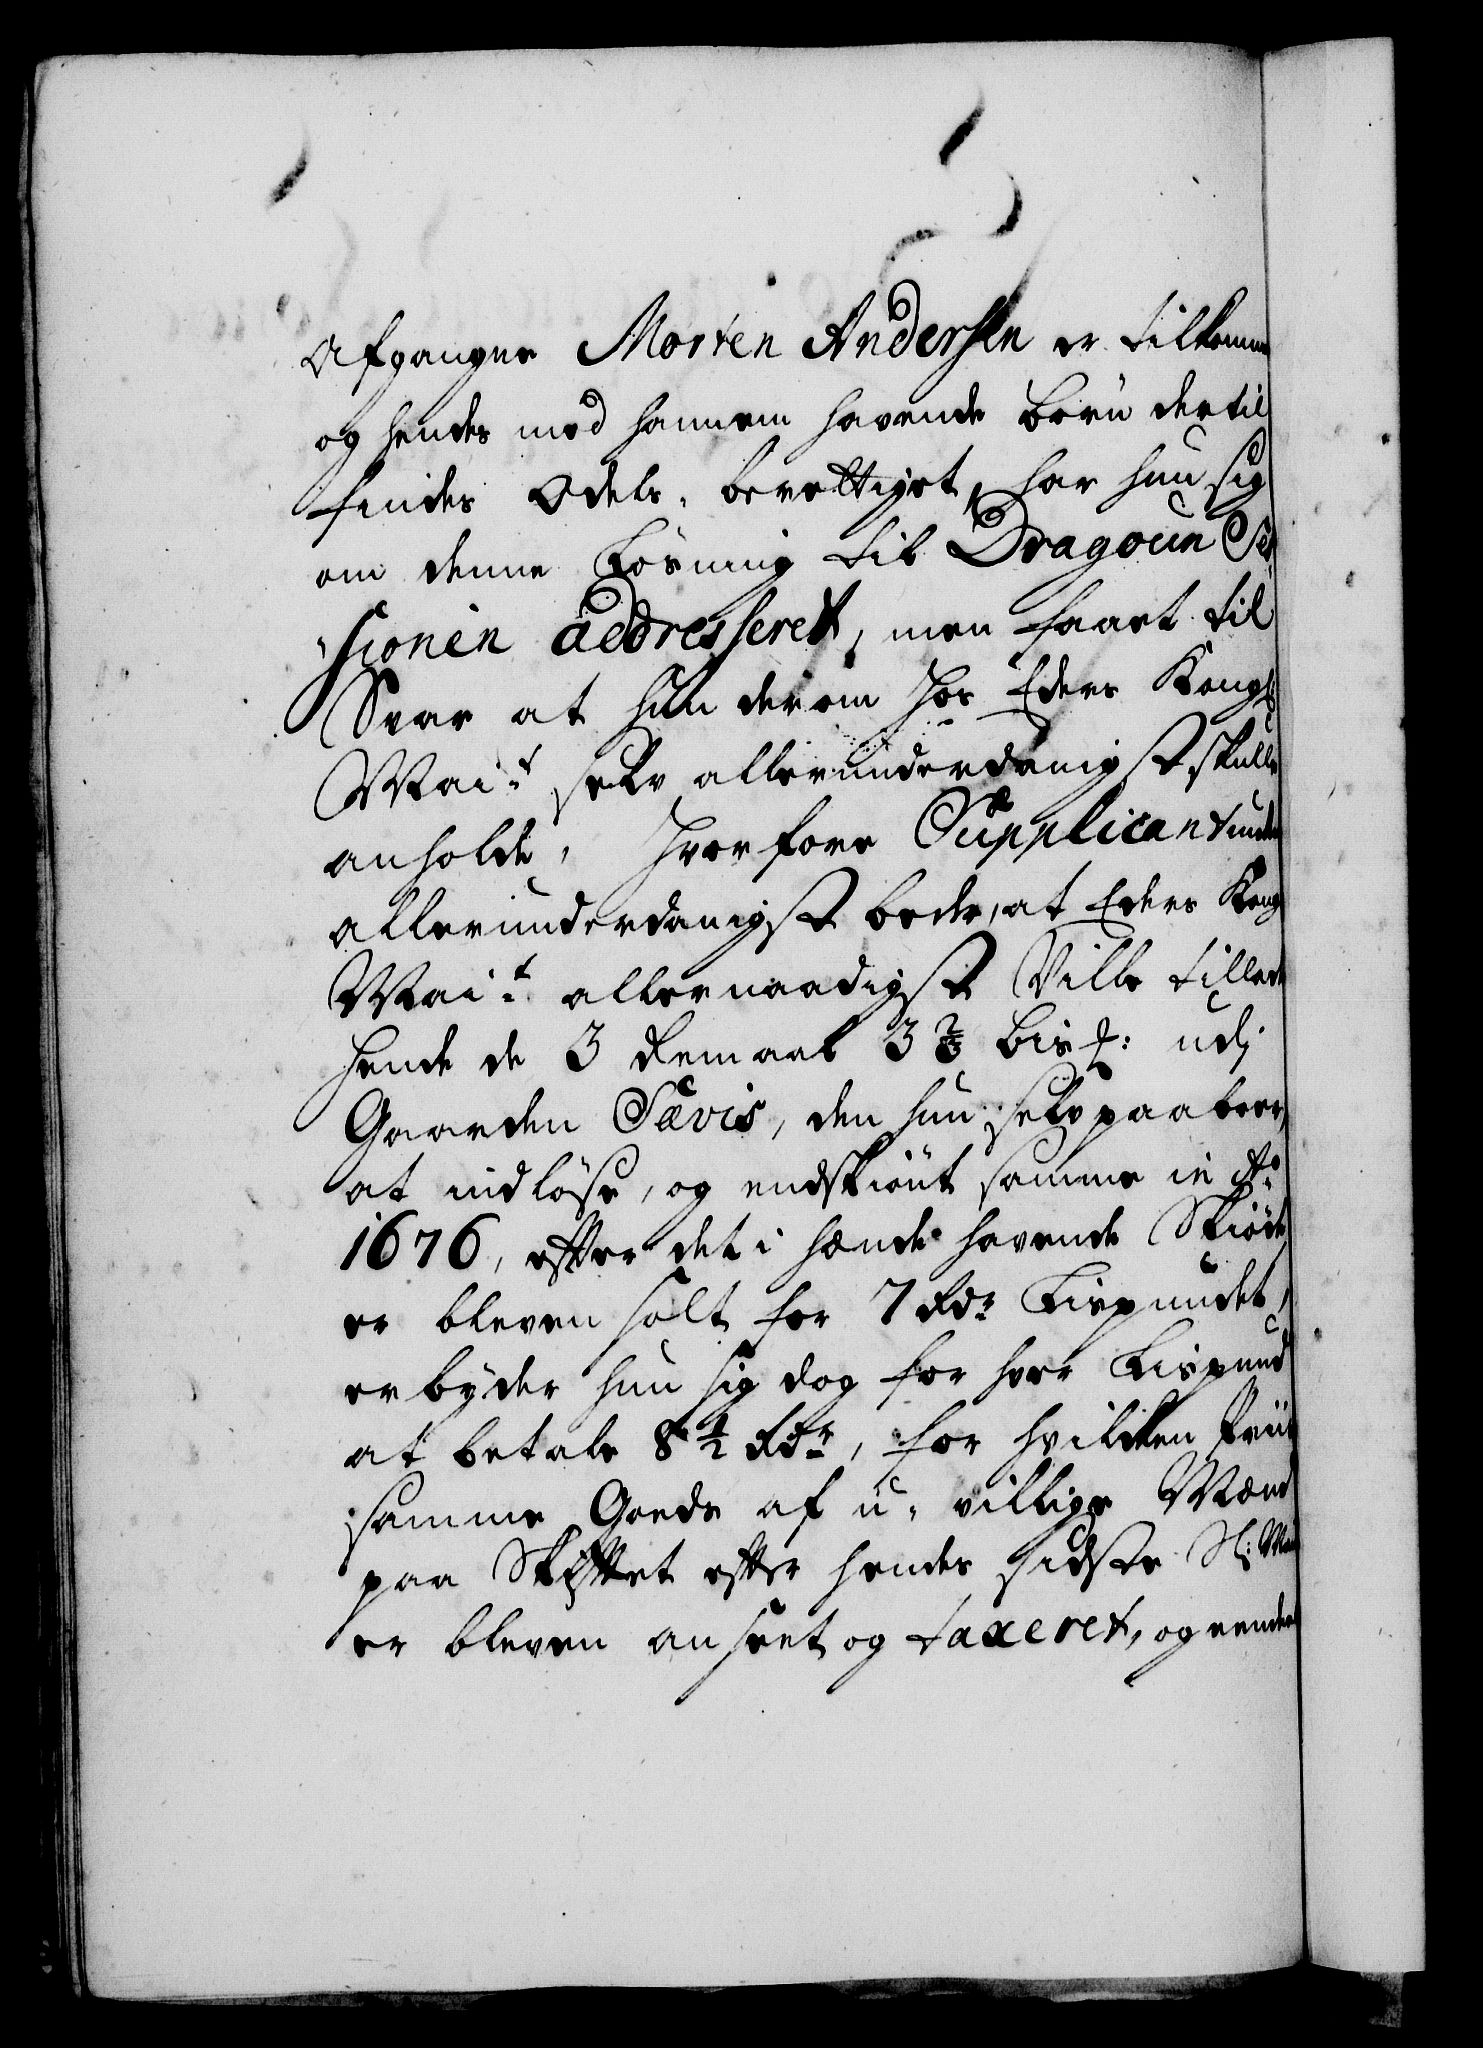 Afganger Morten Andersen er tilkomme
og hendes med hannem havende börn dertil
findes Odels-berettiget, har hun sig
om denne Lösning til Dragoun Ses-
sionen addresseret, men faaet til
Svar at hun derom hos Eders Kongl:
Mai:t selv allerunderdanigst skulle
anholde, hvorfore Supplicantinden
allerunderdanigst beder, at Eders Kong
Mai:t allernaadigst Ville tillade
hende de 3 Remaal 3 2/3 Bis℔: udj
Gaarden Sævis, den hun selv paaboer,
at indlöse, og endskiönt samme in Ao
1676, efter det i hænde havende Skiöde
er bleven solt for 7 Rdr Lispundet,
erbyder hun sig dog for hver Lispund
at betale 8 1/2 Rdr, for hvilken Priis
samme Goeds af u-villige Mænd
paa Skiftet efter hendes sidste Sl: Man
er bleven anseet og taxeret, og enden